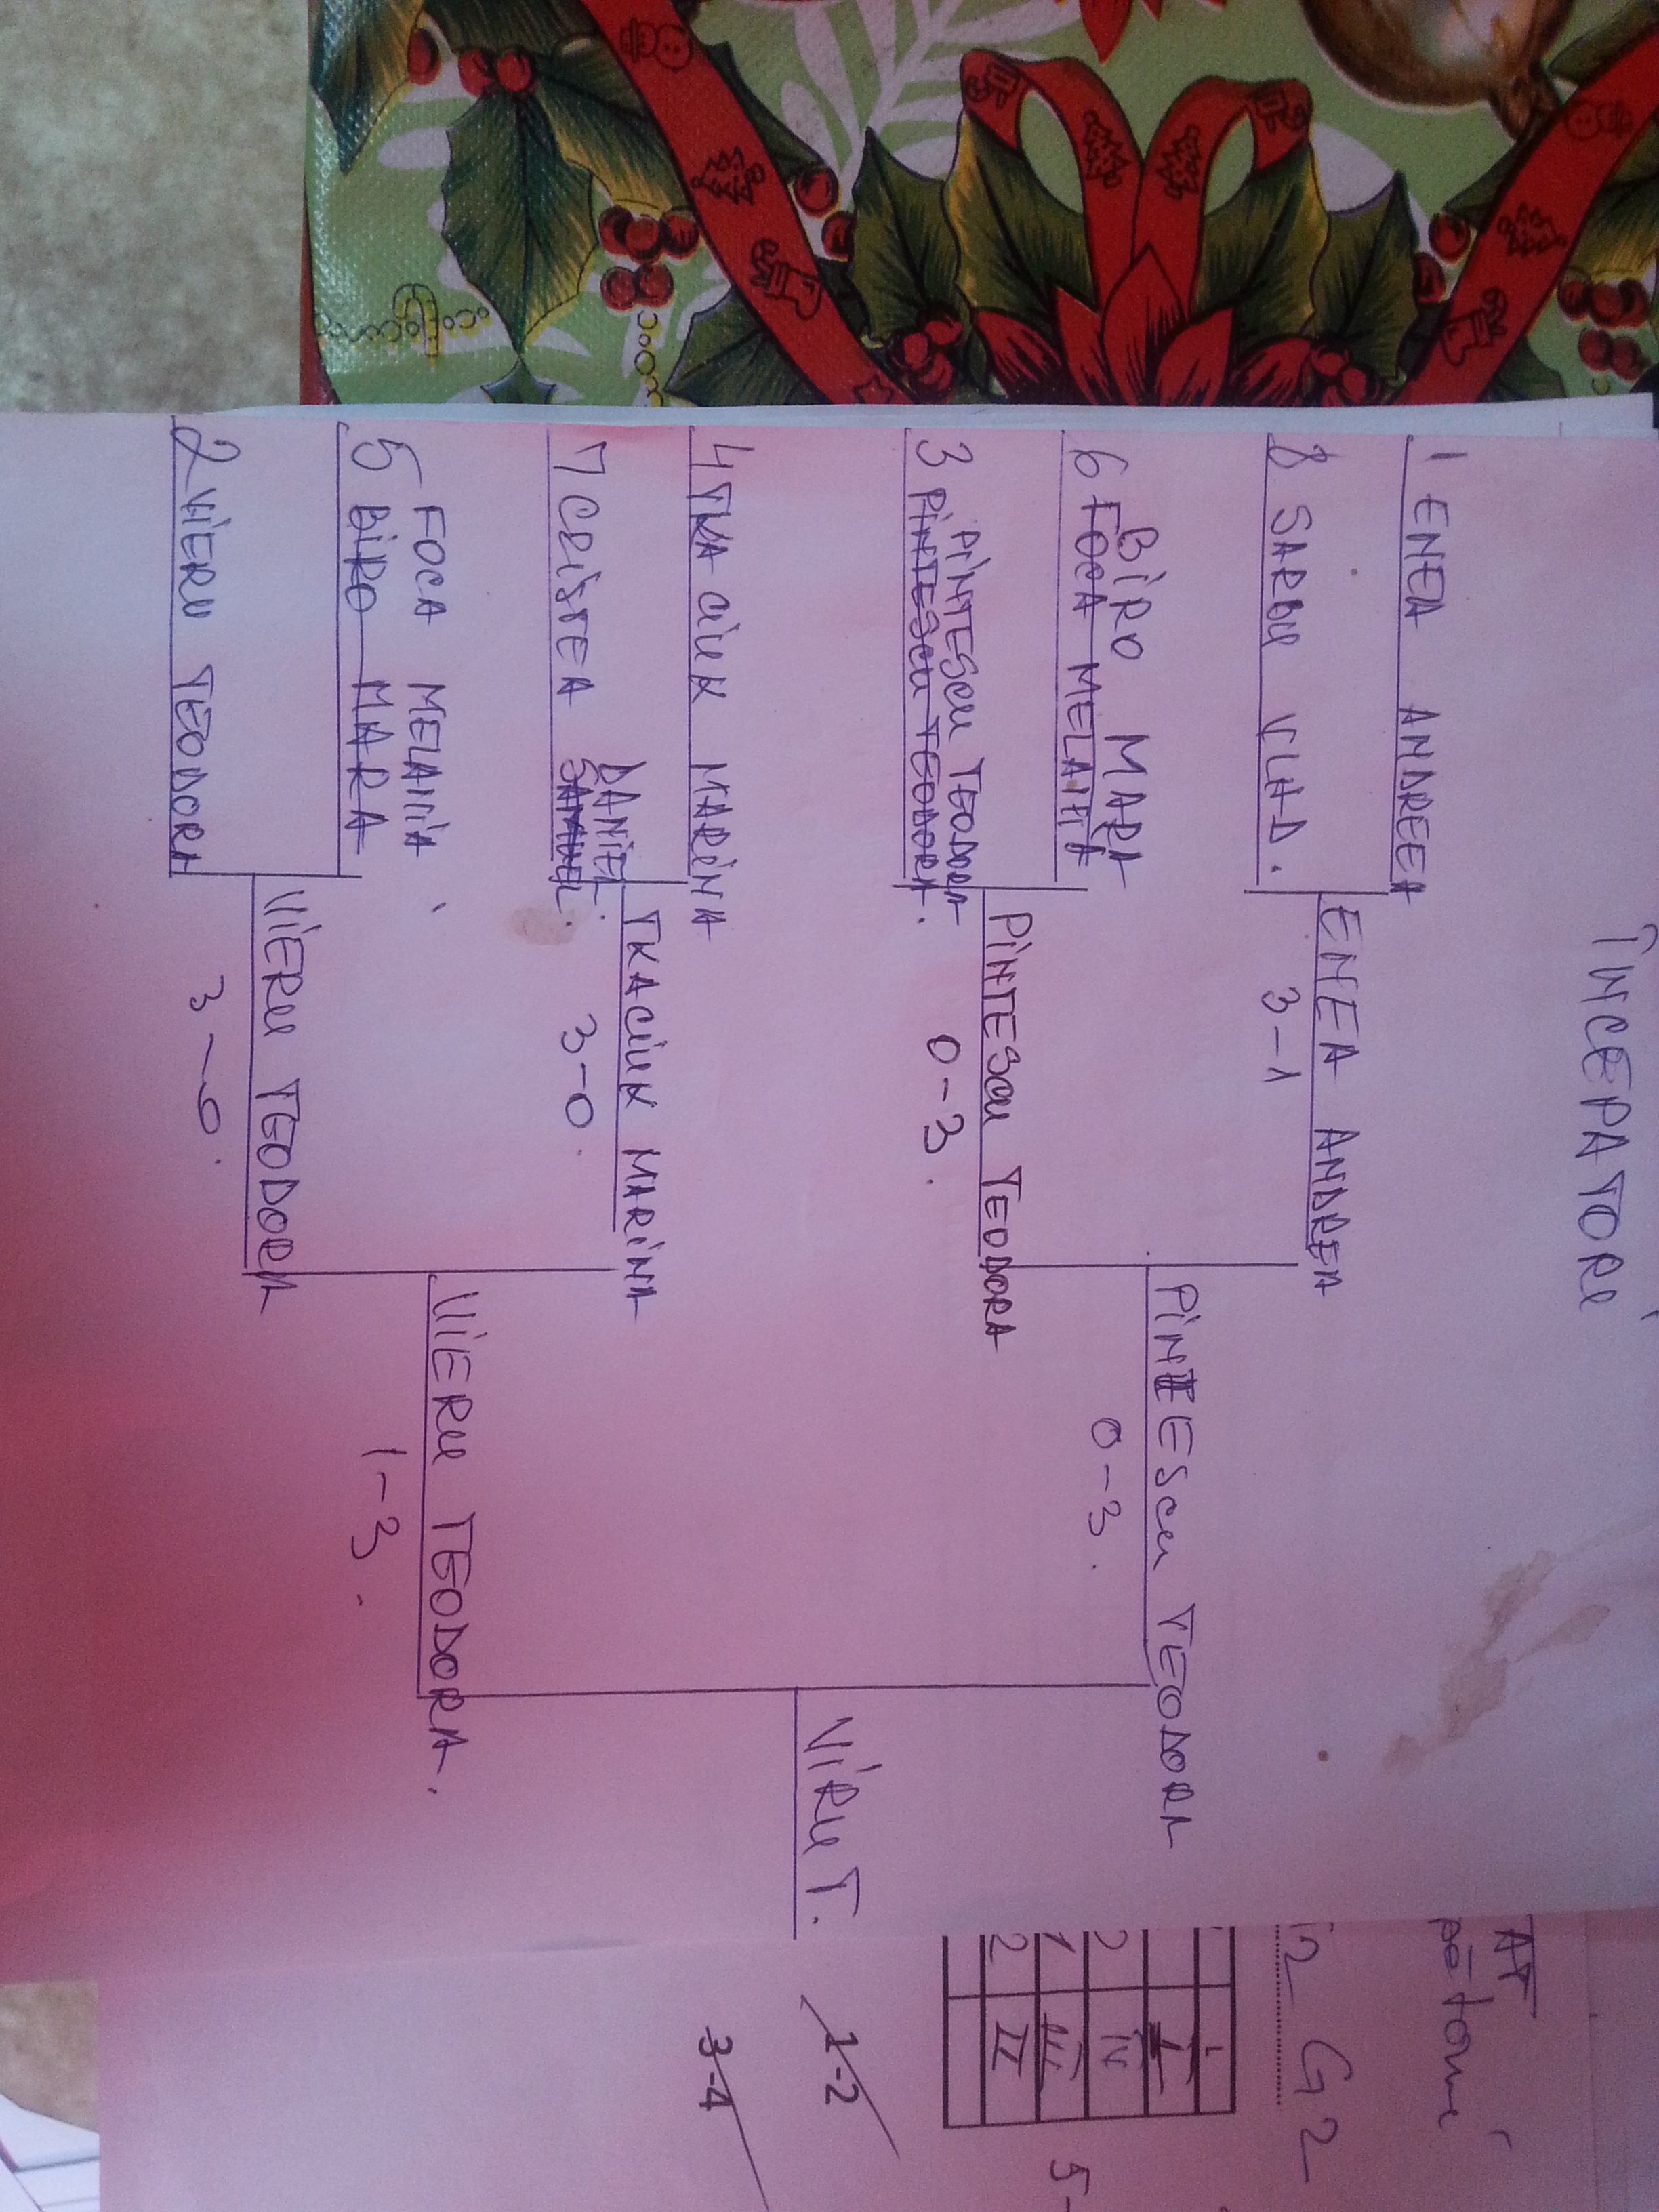 ÎNCEPATORI
1 ENEA ANDREEA
8 SARBU VLAD.
BIRO MARA
6 FOCA MELANIA
PINTESCU TEODORA
3 PINTESCU TEODORA.
4 TKACIUK MARINA
DANIEL.
7 CRISTEA SAMUEL.
FOCA MELANIA
5 BIRO MARA
2 VIERU TEODORA
ENEA ANDREA
3-1
PINTESCU TEODORA
0-3.
TKACIUK MARINA
3-0.
VIERU TEODORA
3-0.
PINTESCU TEODORA
0-3.
VIERU TEODORA.
1-3.
VIRU T.
G2
2
1
2
I
IV
III
II
1-2
3-4
5-